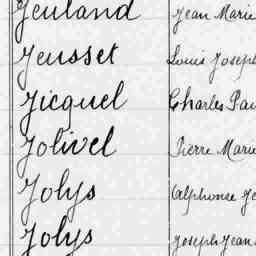 Jeuland Jean Marie
Jeusset Louis Joseph
Jicquel Charles Pau
Jolivel Pierre Marie
Jolys Alphonse Je
Jolys Joseph Jean